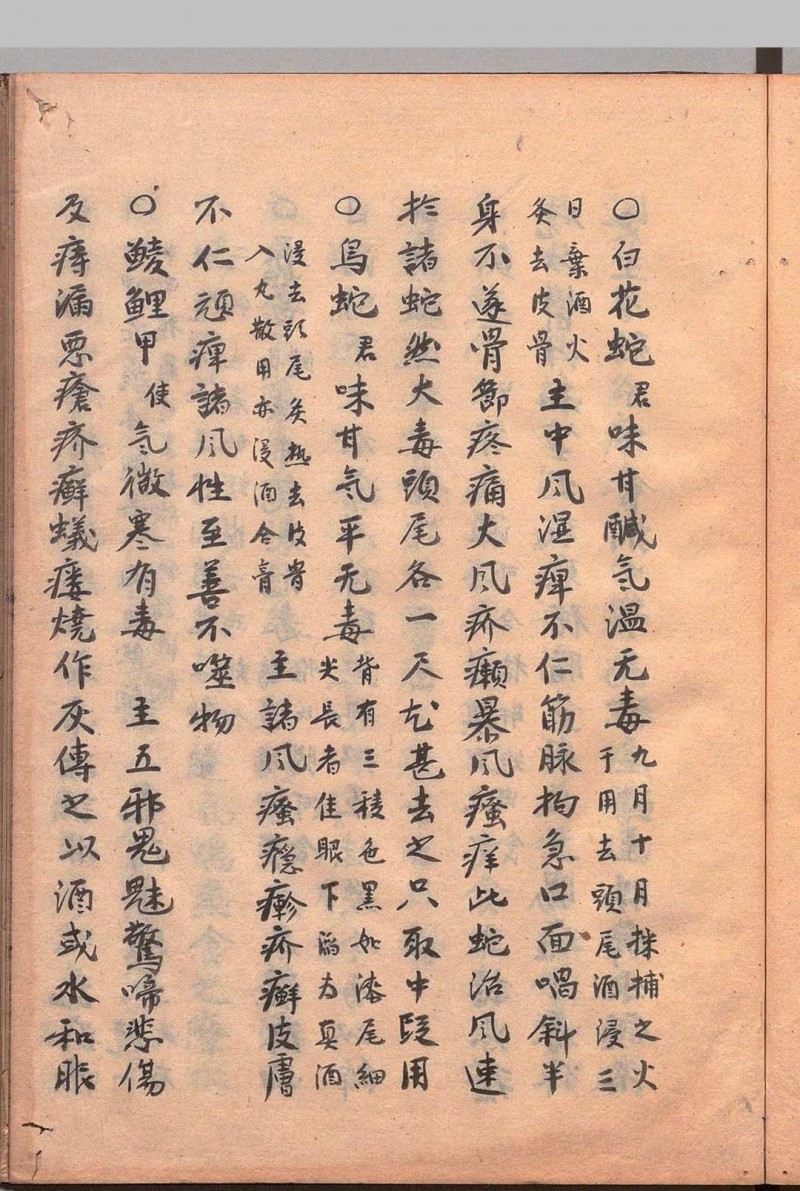 〇白花蛇君味甘鹹气温无毒九月十月採捕之火
干用去頭尾酒浸三
日棄酒火
炙去皮骨主中风湿痺不仁筋脉拘急口面喎斜半
身不遂骨節疼痛大风疥癩暴风瘙痒此蛇治风速
扵諸蛇然大毒頭尾各一尺尤甚去之只取中段用
〇烏蛇君味甘气平无毒背有三稜色黑如漆尾細
尖長者佳眼下陷为真酒
浸去頭尾炙热去皮骨
入丸散用亦浸酒合膏主諸风瘙癮瘮疥癬皮膚
不仁頑痺諸风性至善不噬物
〇鯪鯉甲使气微寒有毒　主五邪鬼魅驚啼悲傷
及痔漏悪瘡疥癬蟻瘻燒作灰傅之以酒或水和服